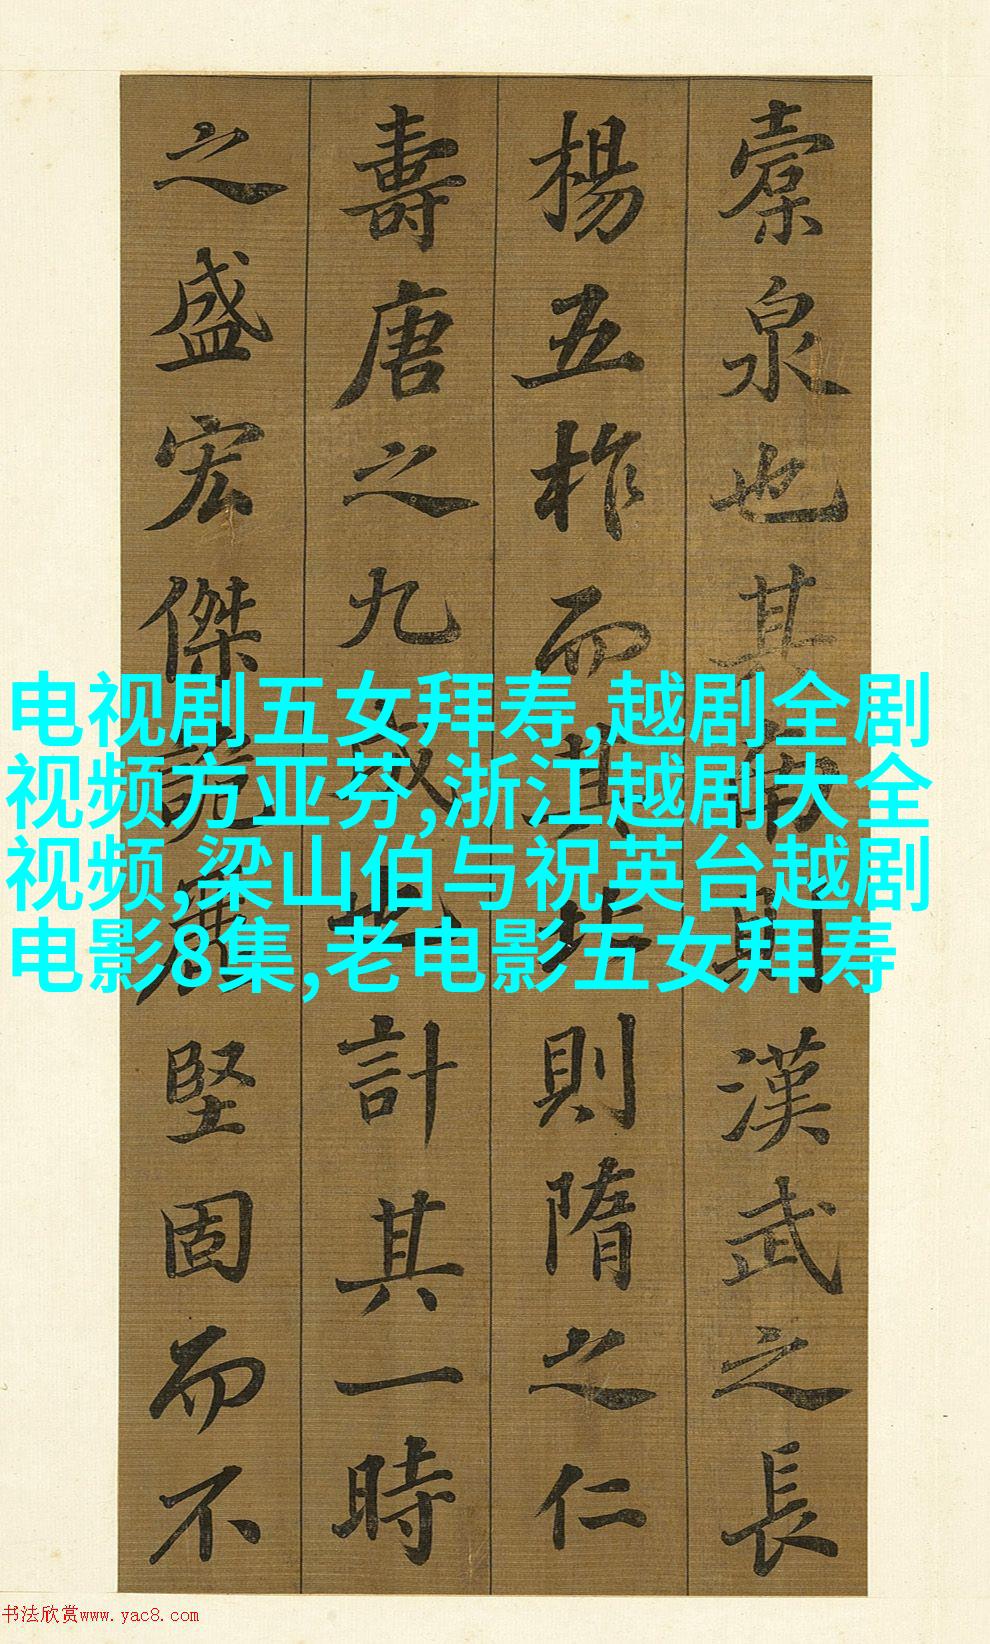 橐泉也其南則漢武之長
楊五柞而其北則隋之仁
壽唐之九成也計其一時
之盛宏傑詭麗堅固而不
电视剧五女拜寿,越剧全剧
视频方亚芬,浙江越剧大全
视频,梁山伯与祝英台越剧
电影8集,老电影五女拜寿
书法欣赏www.yac8.com